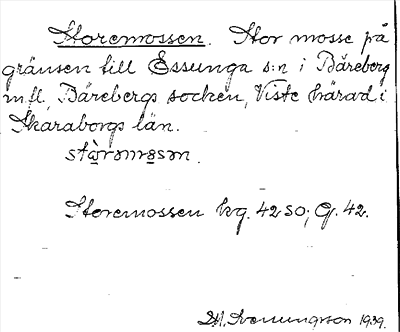 Storemossen. Stor mosse på
gränsen till Essunga s:n i Båreberg
m.fl., Bårebergs socken, Viste härad i
Skaraborgs län.
stòrəmɷsən.
Storemossen kg. 42 SO; G. 42.
1939.